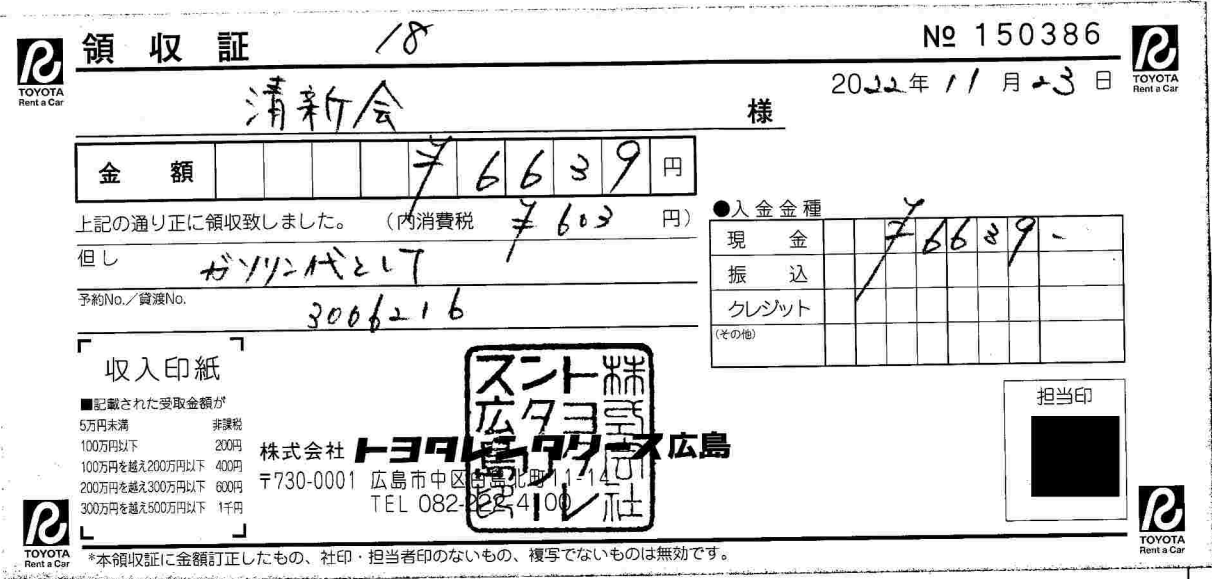 TOYOTA
Rent a Car
領収証
18
№ 150386
TOYOTA
Rent a Car
2022年 11月 23日
清新会 様
金額 ¥6639円
上記の通り正に領収致しました。 (内消費税 ¥603 円)
但し ガソリン代として
予約No./貸渡No.
3006216
●入金金種
現金 ¥6639-
振込
クレジット
(その他)
収入印紙
■記載された受取金額が
5万円未満 非課税
100万円以下 200円
100万円を越え200万円以下 400円
200万円を越え300万円以下 600円
300万円を越え500万円以下 1千円
株式会社 トヨタレンタリース広島
〒730-0001 広島市中区白島北町11-14
TEL 082-222-4100
株式会社
トヨタレ
ンタリー
ス広島
担当印
TOYOTA
Rent a Car
TOYOTA
Rent a Car
*本領収証に金額訂正したもの、社印・担当者印のないもの、複写でないものは無効です。